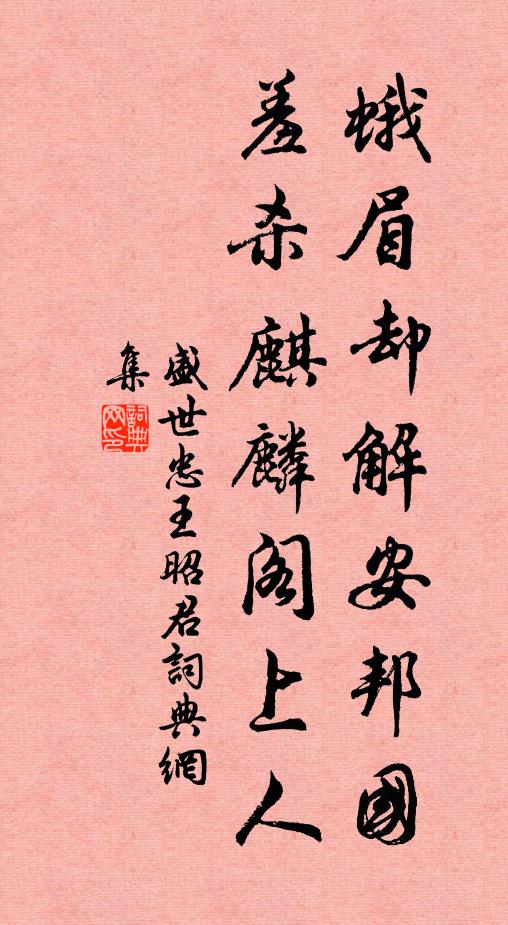 蛾眉却解安邦國
羞杀麒麟阁上人
盛世忠王昭君詞典網
集
詞典
网印